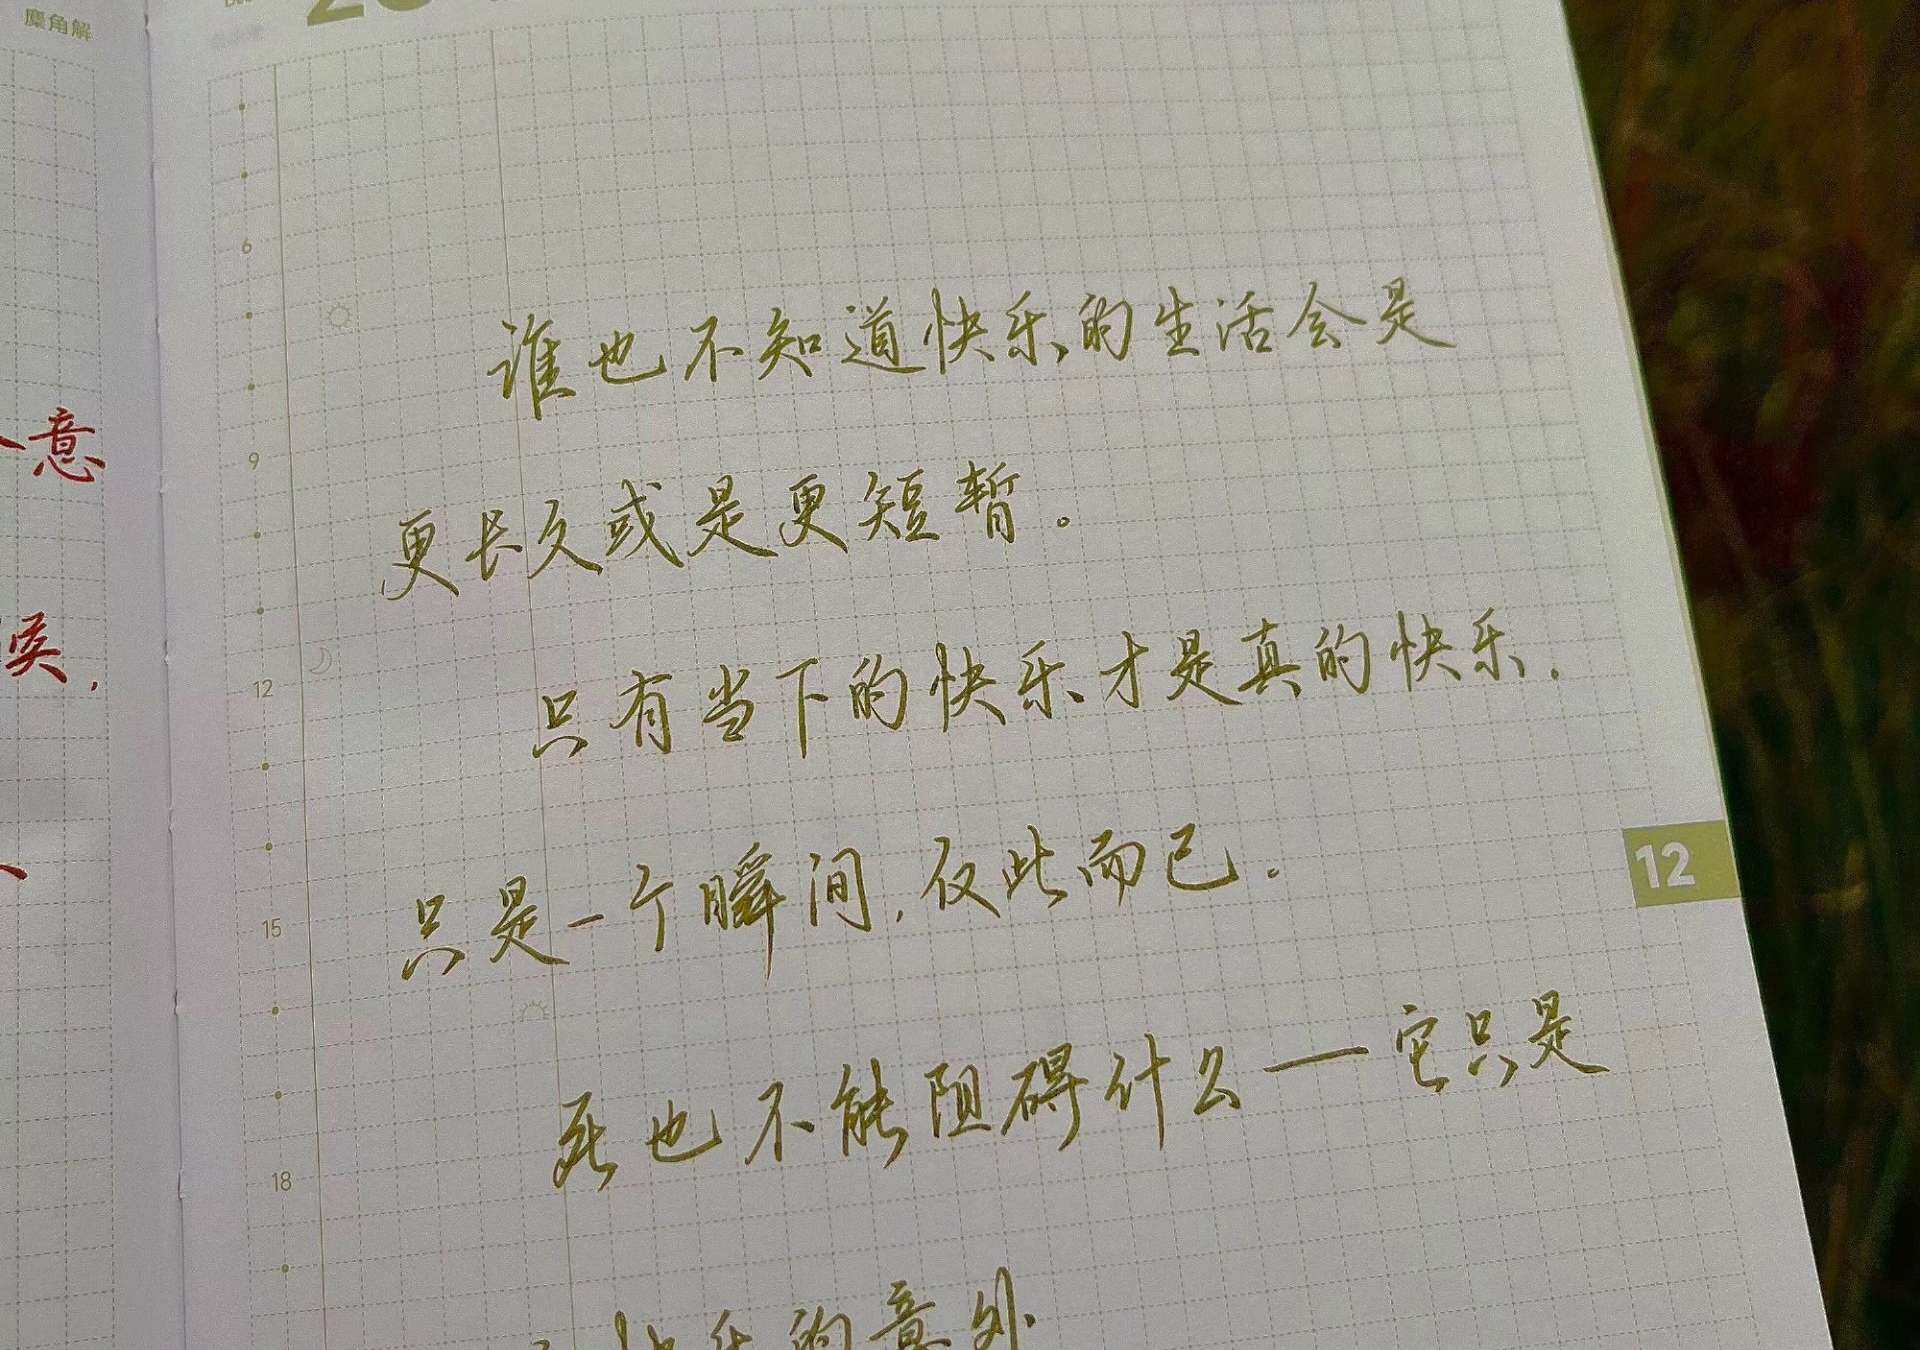 麋角解
意
谁也不知道快乐的生活会是
6
更长久或是更短暂。
9
只有当下的快乐才是真的快乐.
12
只是一个瞬间,仅此而已.
12
15
死也不能阻碍什么——它只是
18
快乐的意外